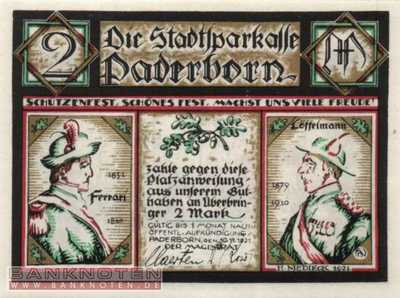 2 Die Stadtsparkasse M
Paderborn.
SCHÜTZENFEST, SCHÖNES FEST, MACHST UNS VIELE FREUDE!
1851
Ferrari
zahle gegen diese
Platzanweisung
aus unserem Gut-
haben an Überbrin-
ger 2 Mark.
GÜLTIG BIS 1 MONAT NACH
ÖFFENTL. AUFKÜNDIGUNG
PADERBORN, DEN 10.11.1921
DER MAGISTRAT
Löffelmann
1879
1920
H. NIEDIECK 1921
BANKNOTEN
WWW.BANKNOTEN.DE